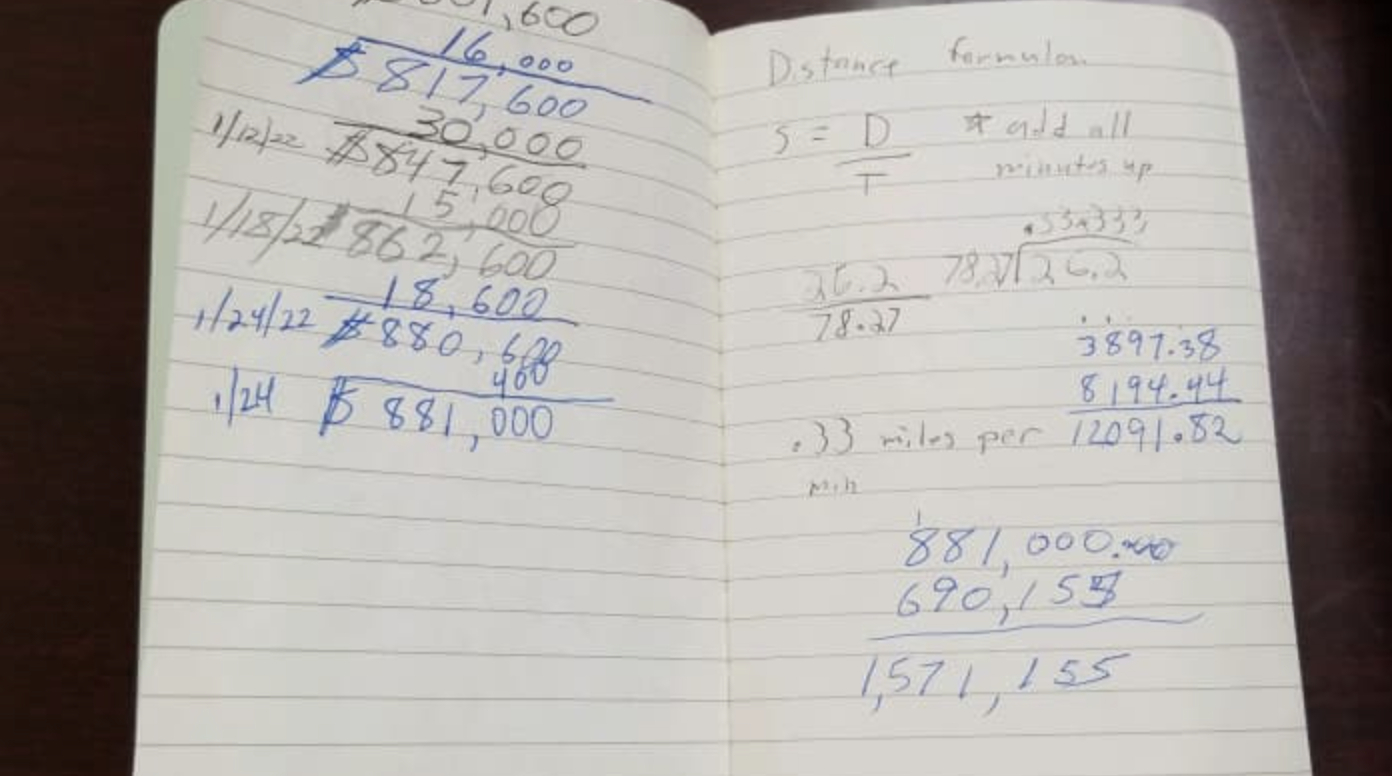 01,600
16,000
$817,600
30,000
1/12/22 $847,600
15,000
1/18/22 862,600
18,600
1/24/22 $880,600
400
1/24 $881,000
Distance formulan
S = D * add all
T minutes up
.53.333
26.2 78.27 26.2
78.27
3897.38
8194.44
.33 miles per 12091.82
min
1
881,000.00
690,155
1,571,155